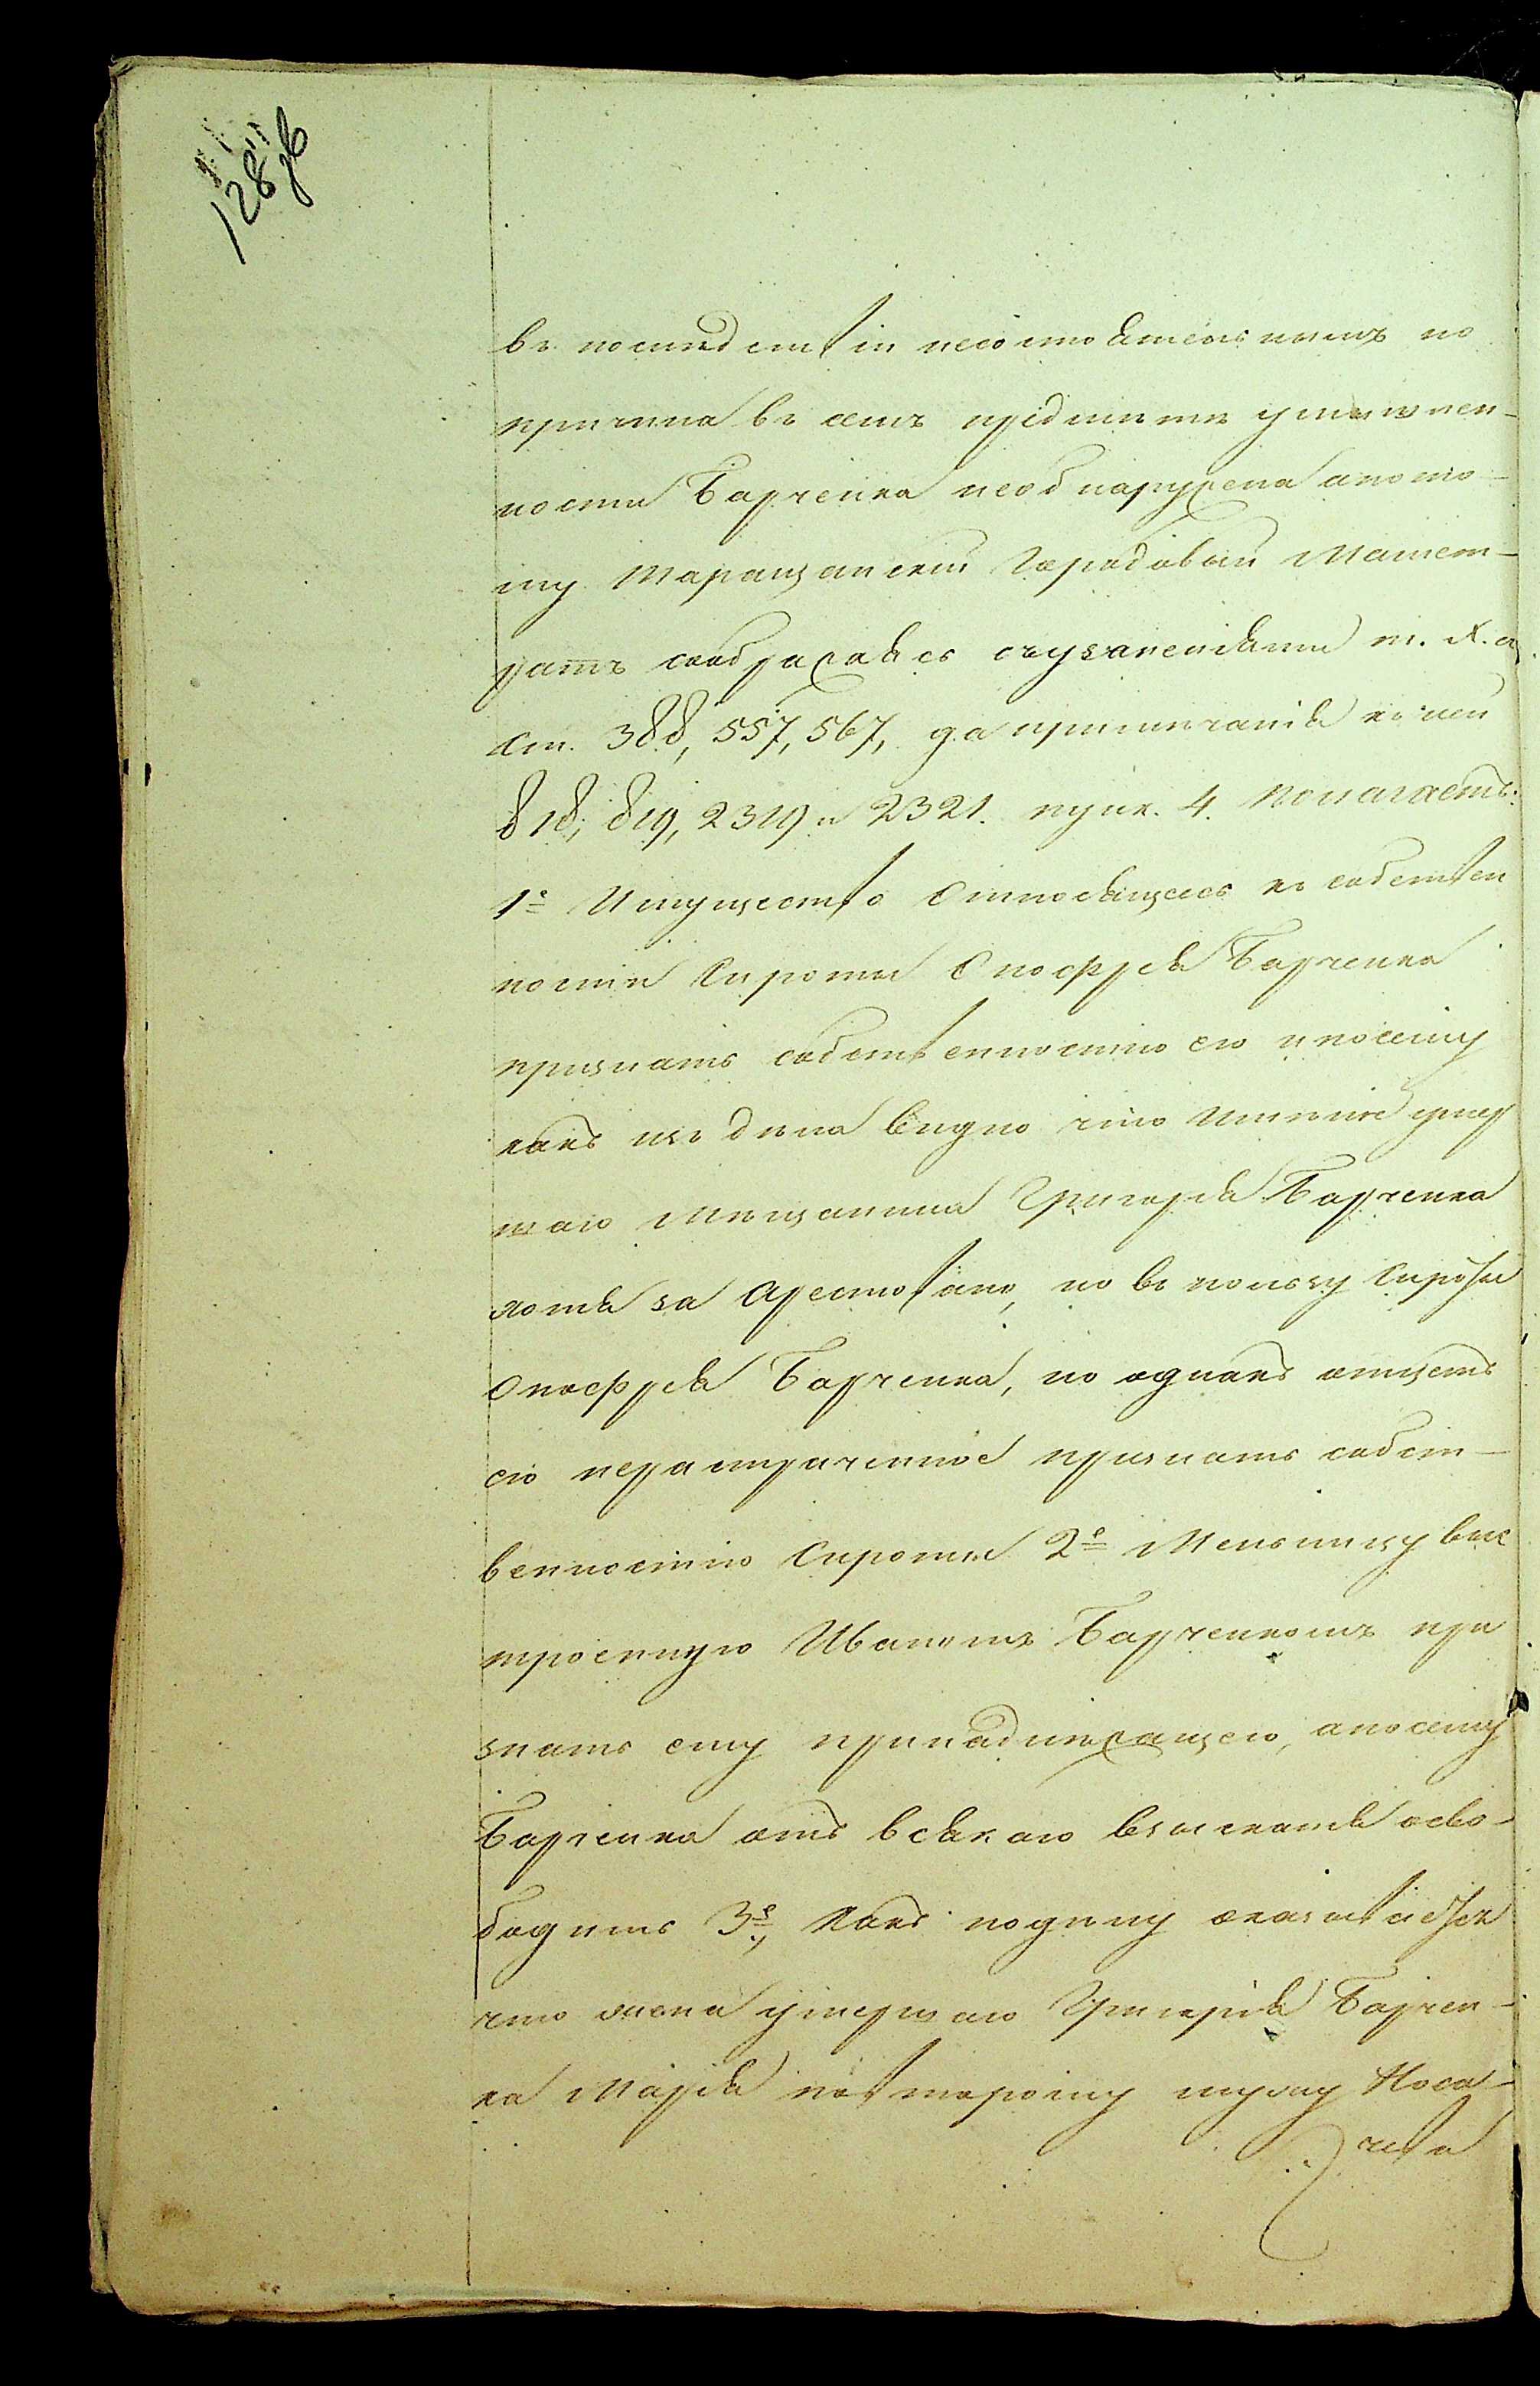 128 зв
въ последствіи несостоятельнымъ но
причина въ семъ предметѣ умышлен-
ности Барченка необнаружена апото-
му Таращанскій Городовый Магист-
ратъ соображаясь съузаконеніями т. X. о
ст. 388, 557, 567, да примечанія къ ней
818, 819, 2319 и 2321. пунк. 4. Полагаетъ:
1е Имущество Относящееся къ собствен
ности Сироты Онофрея Барченка
признать собственностію его ипосему
какъ изъ дела видно что Имение умер
шаго Мещанина Григорія Барченка
хотя за Арестовано, но въ пользу Сироты
Онофрея Барченка, но однакъ отцетъ
сіо нерастраченное признать собст-
венностію Сироты 2е Мельницу выс
троенную Иваномъ Барченкомъ при
знать ему принадлежащею, апосему
Барченка отъ всякаго взысканія осво-
бодить 3е, Какъ подѣлу оказывается
что жена умершаго Григорія Барчен-
ка Марія повторому мужу Носа-
чева